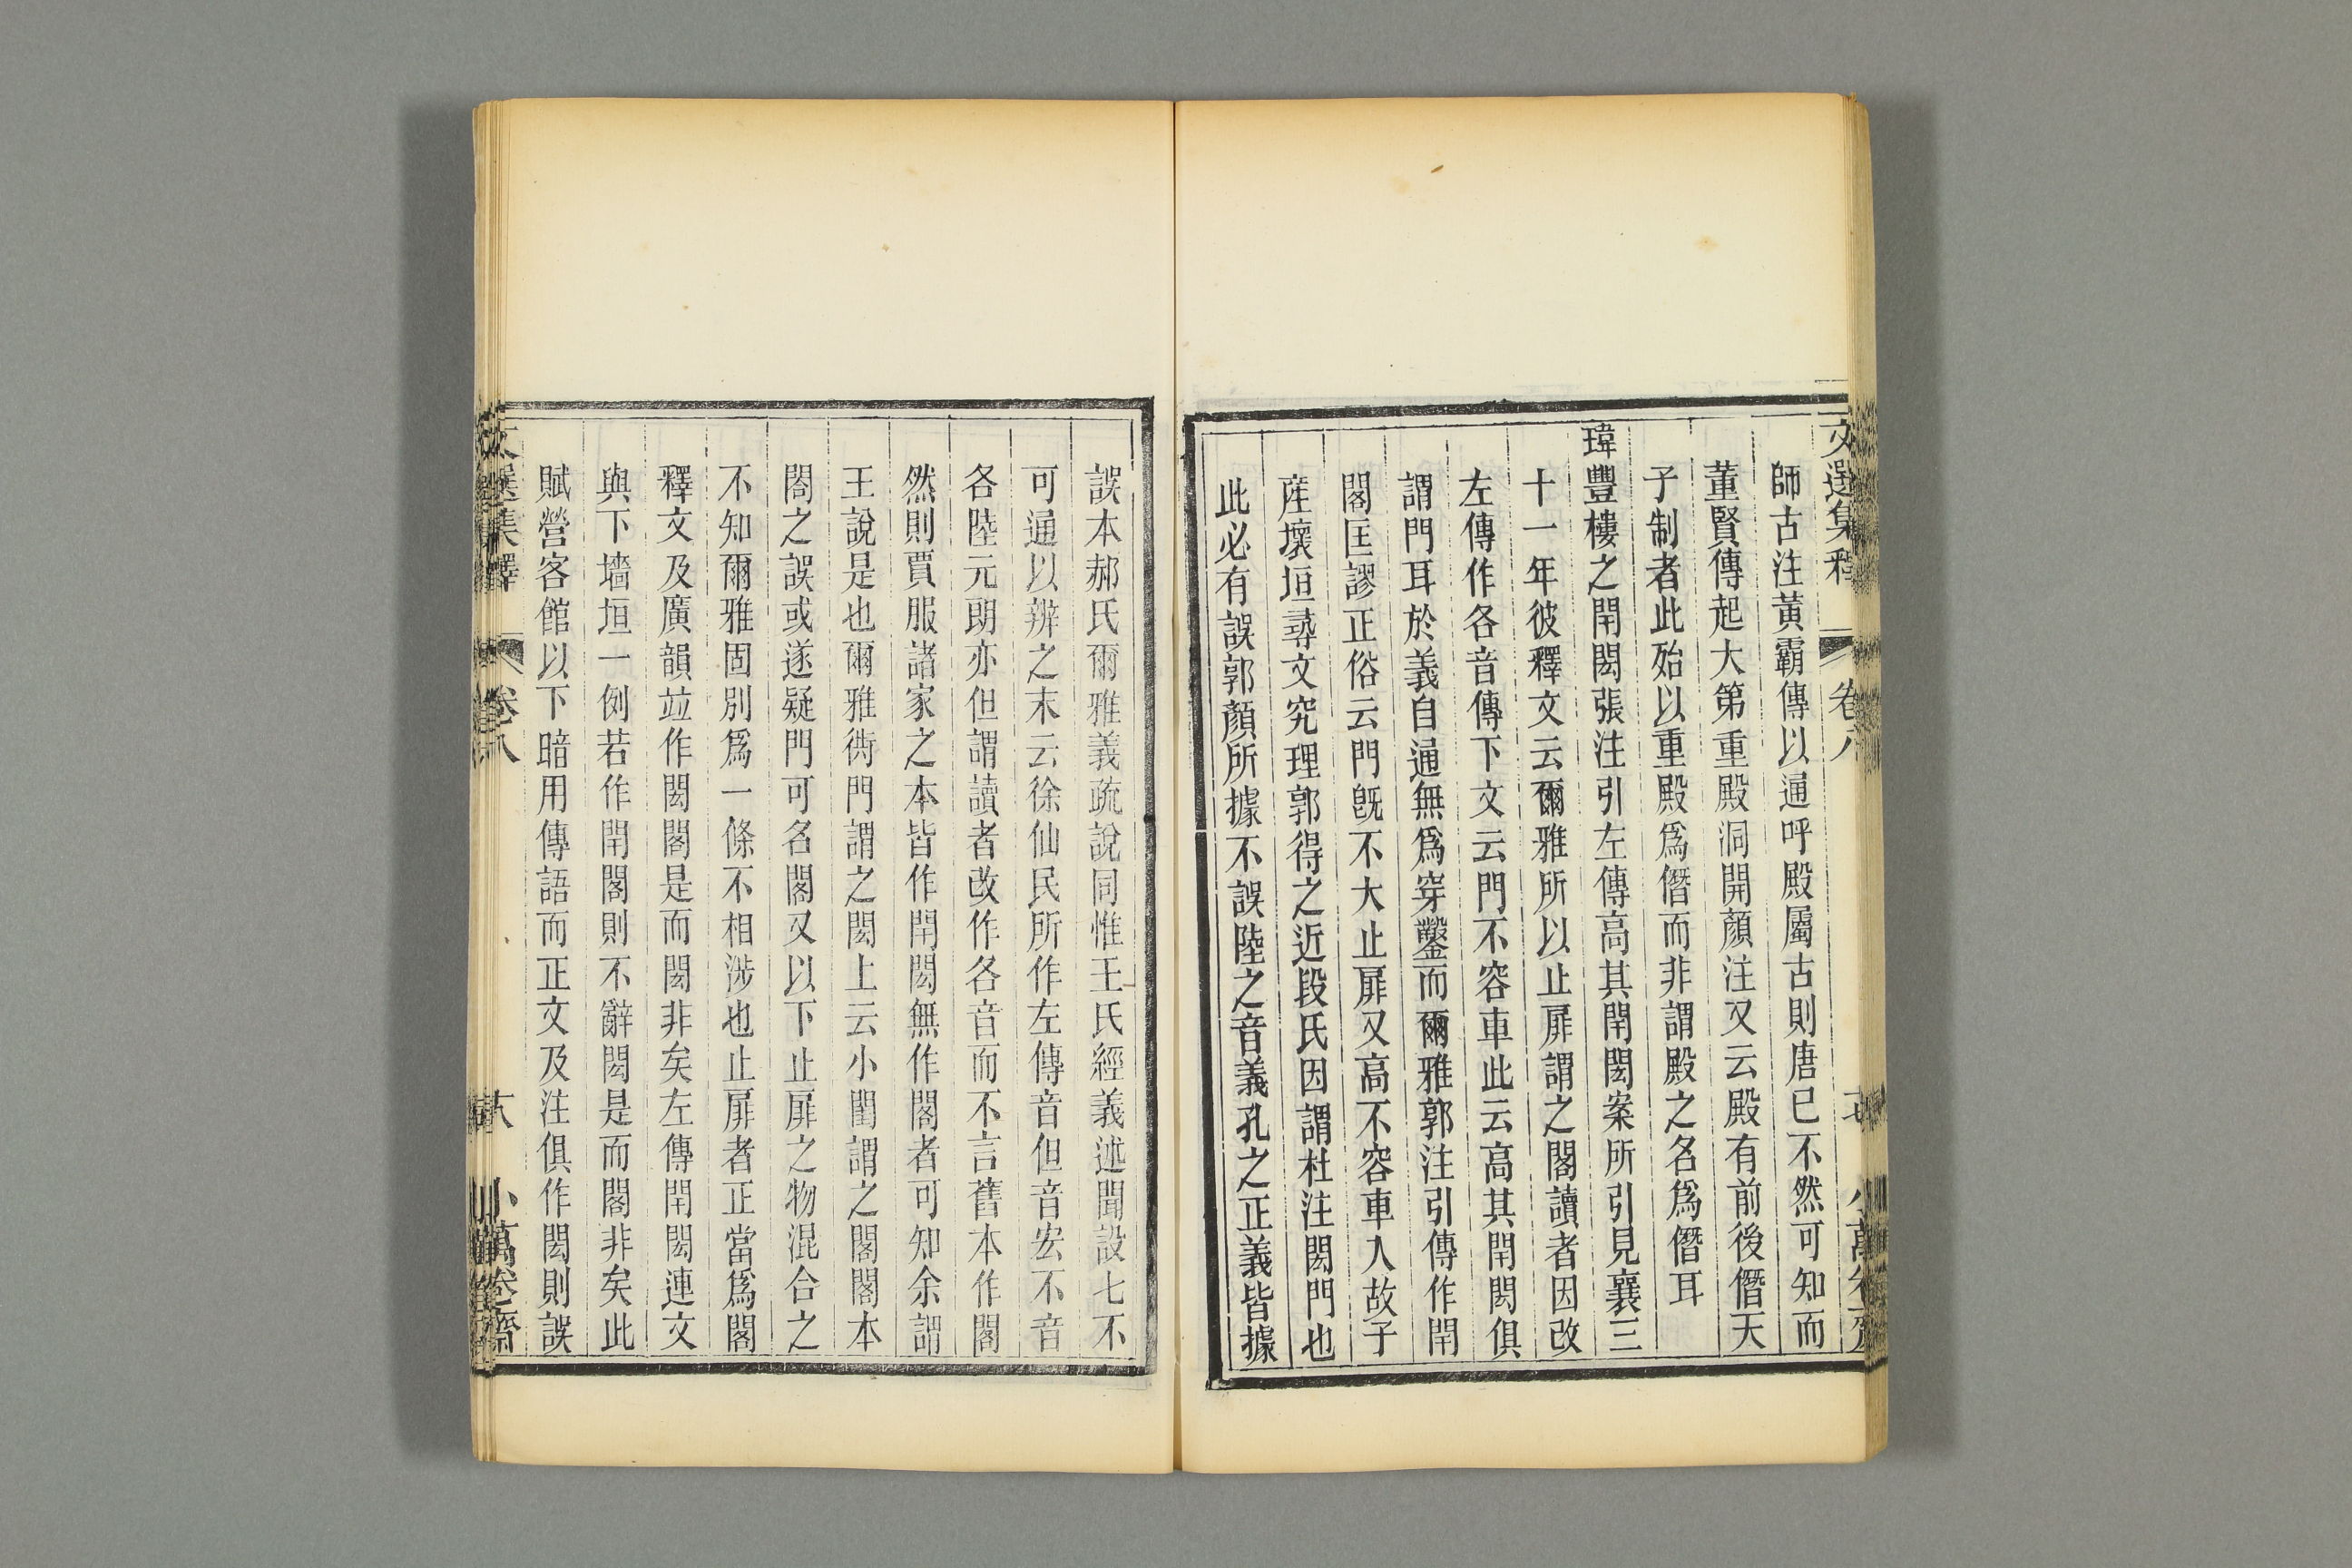 文選集釋 卷八 小萬卷齋
師古注黃霸傳以通呼殿屬古則唐已不然可知而
董賢傳起大第重殿洞開顏注又云殿有前後僭天
子制者此殆以重殿爲僭而非謂殿之名爲僭耳
瑋豐樓之閈閎張注引左傳高其閈閎案所引見襄三
十一年彼釋文云爾雅所以止扉謂之閣讀者因改
左傳作各音傳下文云門不容車此云高其閈閎俱
謂門耳於義自通無爲穿鑿而爾雅郭注引傳作閈
閣匡謬正俗云門旣不大止扉又高不容車入故子
產壞垣尋文究理郭得之近段氏因謂杜注閎門也
此必有誤郭顏所據不誤陸之音義孔之正義皆據
誤本郝氏爾雅義疏說同惟王氏經義述聞設七不
可通以辨之末云徐仙民所作左傳音但音宏不音
各陸元朗亦但謂讀者改作各音而不言舊本作閣
然則賈服諸家之本皆作閈閎無作閣者可知余謂
王說是也爾雅衖門謂之閎上云小閨謂之閤閤本
閤之誤或遂疑門可名閣又以下止扉之物混合之
不知爾雅固別爲一條不相涉也止扉者正當爲閣
釋文及廣韻並作閎閣是而閎非矣左傳閈閎連文
與下墻垣一例若作閈閣則不辭閎是而閣非矣此
賦營客館以下暗用傳語而正文及注俱作閎則誤
文選集釋 卷八 六 小萬卷齋